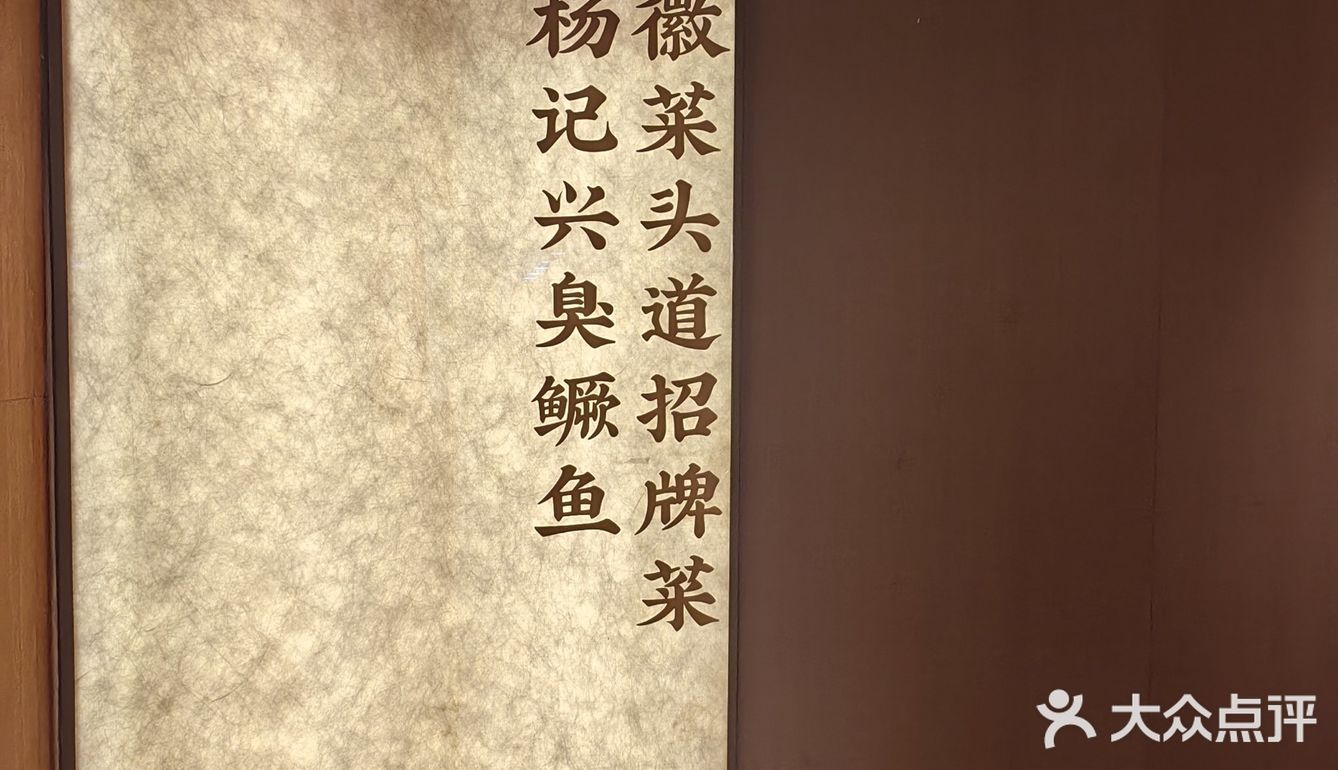 徽菜头道招牌菜
杨记兴臭鳜鱼
大众点评